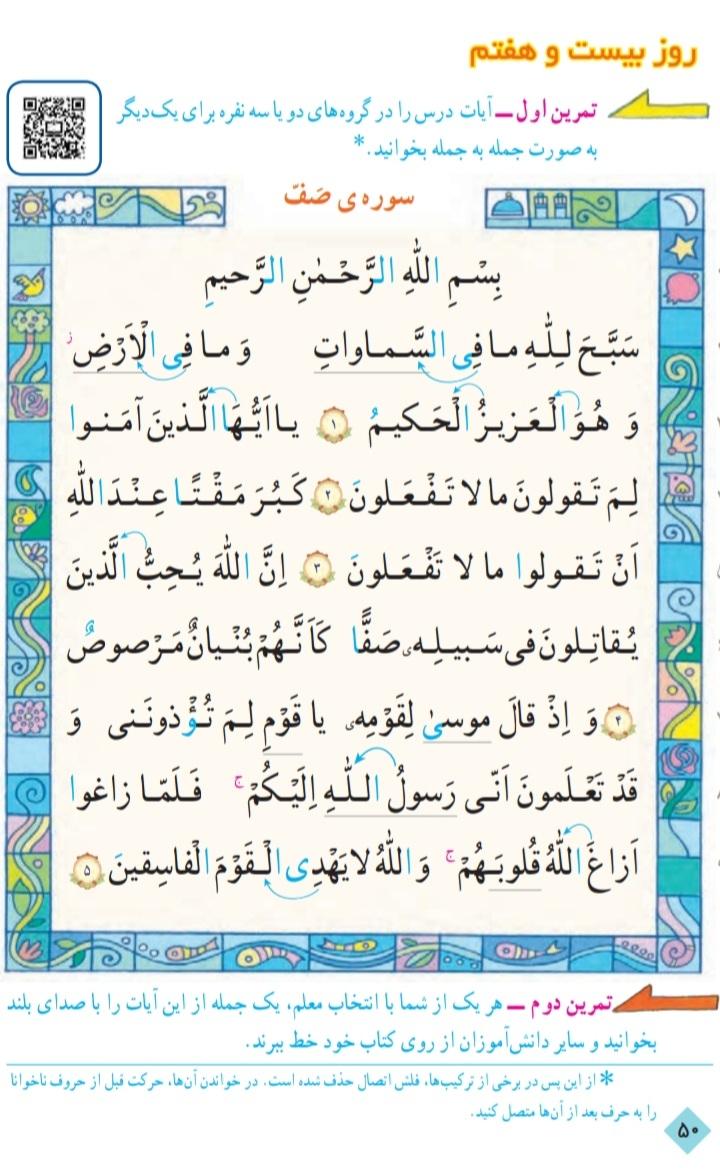 روز بیست و هفتم
تمرین اول ــ آیات درس را در گروه‌های دو یا سه نفره برای یک‌دیگر
به صورت جمله به جمله بخوانید.*
سوره‌ی صَفّ
بِسْمِ اللّٰهِ الرَّحْمٰنِ الرَّحیمِ
سَبَّحَ لِلّٰهِ ما فِی السَّماواتِ وَ ما فِی الْاَرْضِ ز
وَ هُوَ الْعَزیزُ الْحَکیمُ ۱ یا اَیُّهَا الَّذینَ آمَنوا
لِمَ تَقولونَ ما لا تَفْعَلونَ ۲ کَبُرَ مَقْتًا عِنْدَ اللّٰهِ
اَنْ تَقولوا ما لا تَفْعَلونَ ۳ اِنَّ اللّٰهَ یُحِبُّ الَّذینَ
یُقاتِلونَ فی سَبیلِهی صَفًّا کَاَنَّهُمْ بُنْیانٌ مَرْصوصٌ
۴ وَ اِذْ قالَ موسیٰ لِقَوْمِهی یا قَوْمِ لِمَ تُؤْذونَنی وَ
قَدْ تَعْلَمونَ اَنّی رَسولُ اللّٰهِ اِلَیْکُمْ ج فَلَمّا زاغوا
اَزاغَ اللّٰهُ قُلوبَهُمْ ج وَ اللّٰهُ لا یَهْدِی الْقَوْمَ الْفاسِقینَ ۵
تمرین دوم ــ هر یک از شما با انتخاب معلم، یک جمله از این آیات را با صدای بلند
بخوانید و سایر دانش‌آموزان از روی کتاب خود خط ببرند.
* از این پس در برخی از ترکیب‌ها، فلش اتصال حذف شده است. در خواندن آن‌ها، حرکت قبل از حروف ناخوانا
را به حرف بعد از آن‌ها متصل کنید.
۵۰